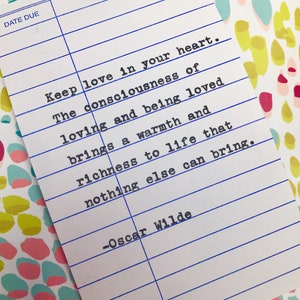 DATE DUE
Keep love in your heart.
The consciousness of
loving and being loved
brings a warmth and
richness to life that
nothing else can bring.
-Oscar Wilde